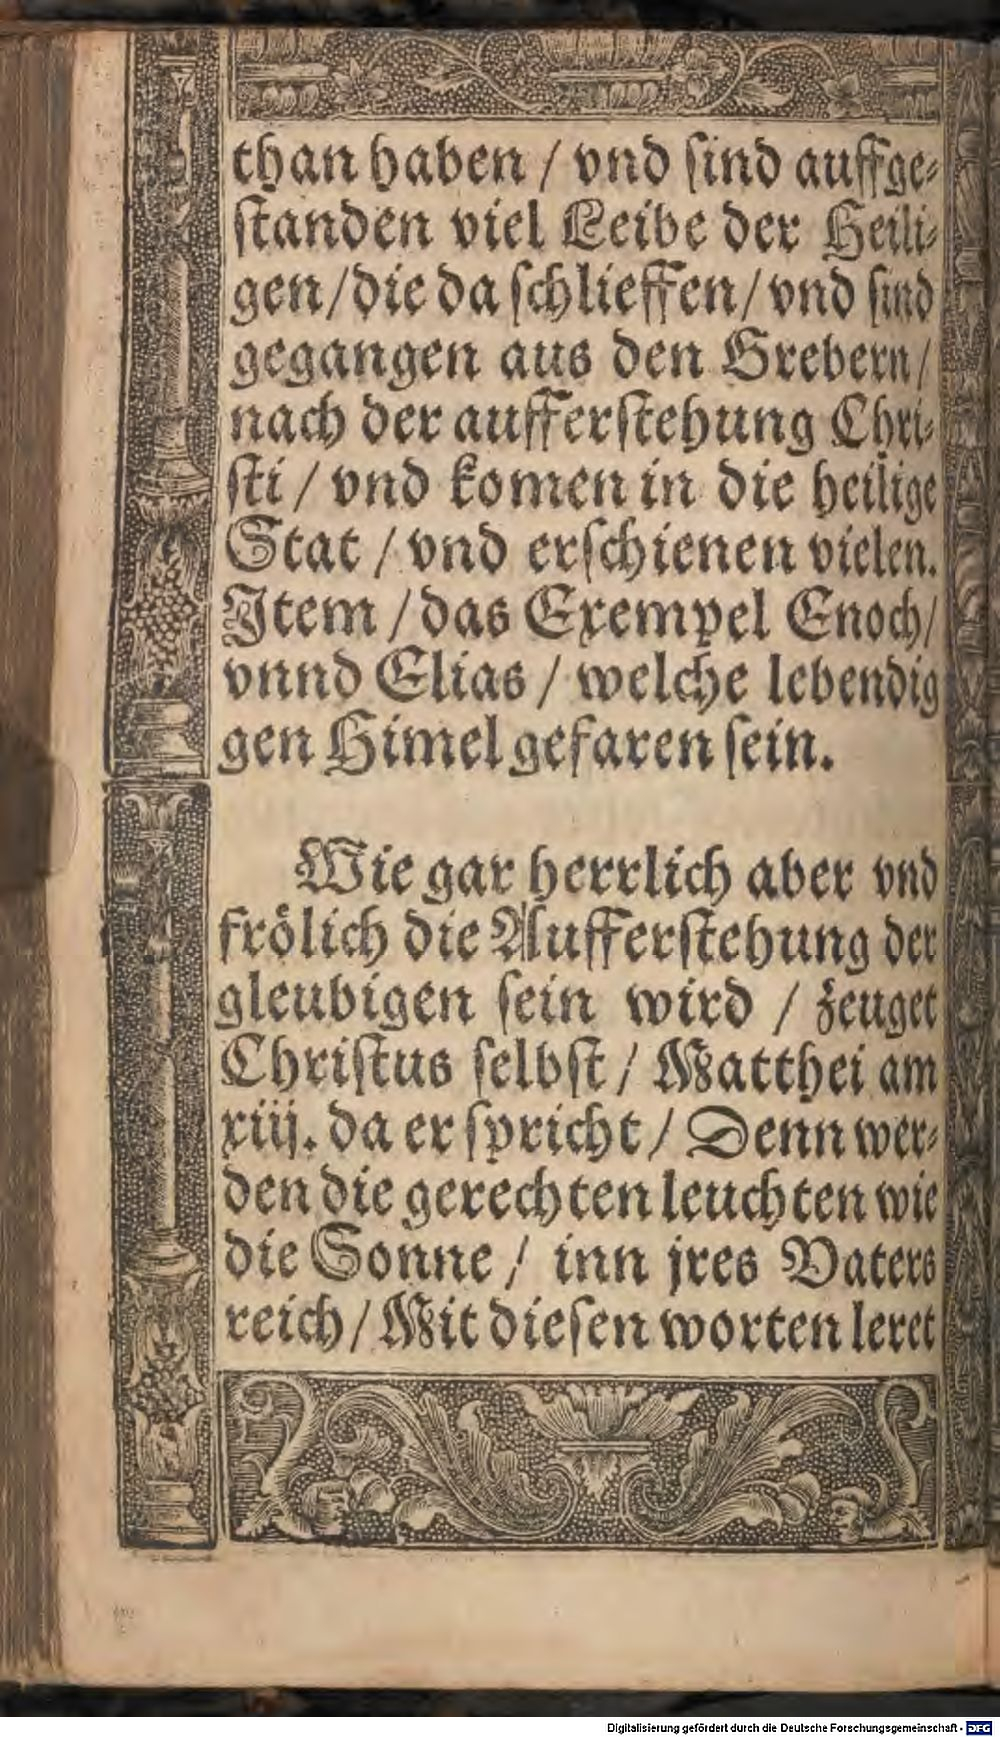 than haben / vnd ſind auffge⸗
ſtanden viel Leibe der Heili⸗
gen / die da ſchlieffen / vnd ſind
gegangen aus den Grebern /
nach der aufferſtehung Chri⸗
ſti / vnd komen in die heilige
Stat / vnd erſchienen vielen.
Item / das Exempel Enoch /
vnnd Elias / welche lebendig
gen Himel gefaren ſein.
Wie gar herrlich aber vnd
frölich die Aufferſtehung der
gleubigen ſein wird / zeuget
Chriſtus ſelbſt / Matthei am
xiij. da er ſpricht / Denn wer⸗
den die gerechten leuchten wie
die Sonne / inn jres Vaters
reich / Mit dieſen worten leret
Digitalisierung gefördert durch die Deutsche Forschungsgemeinschaft - DFG